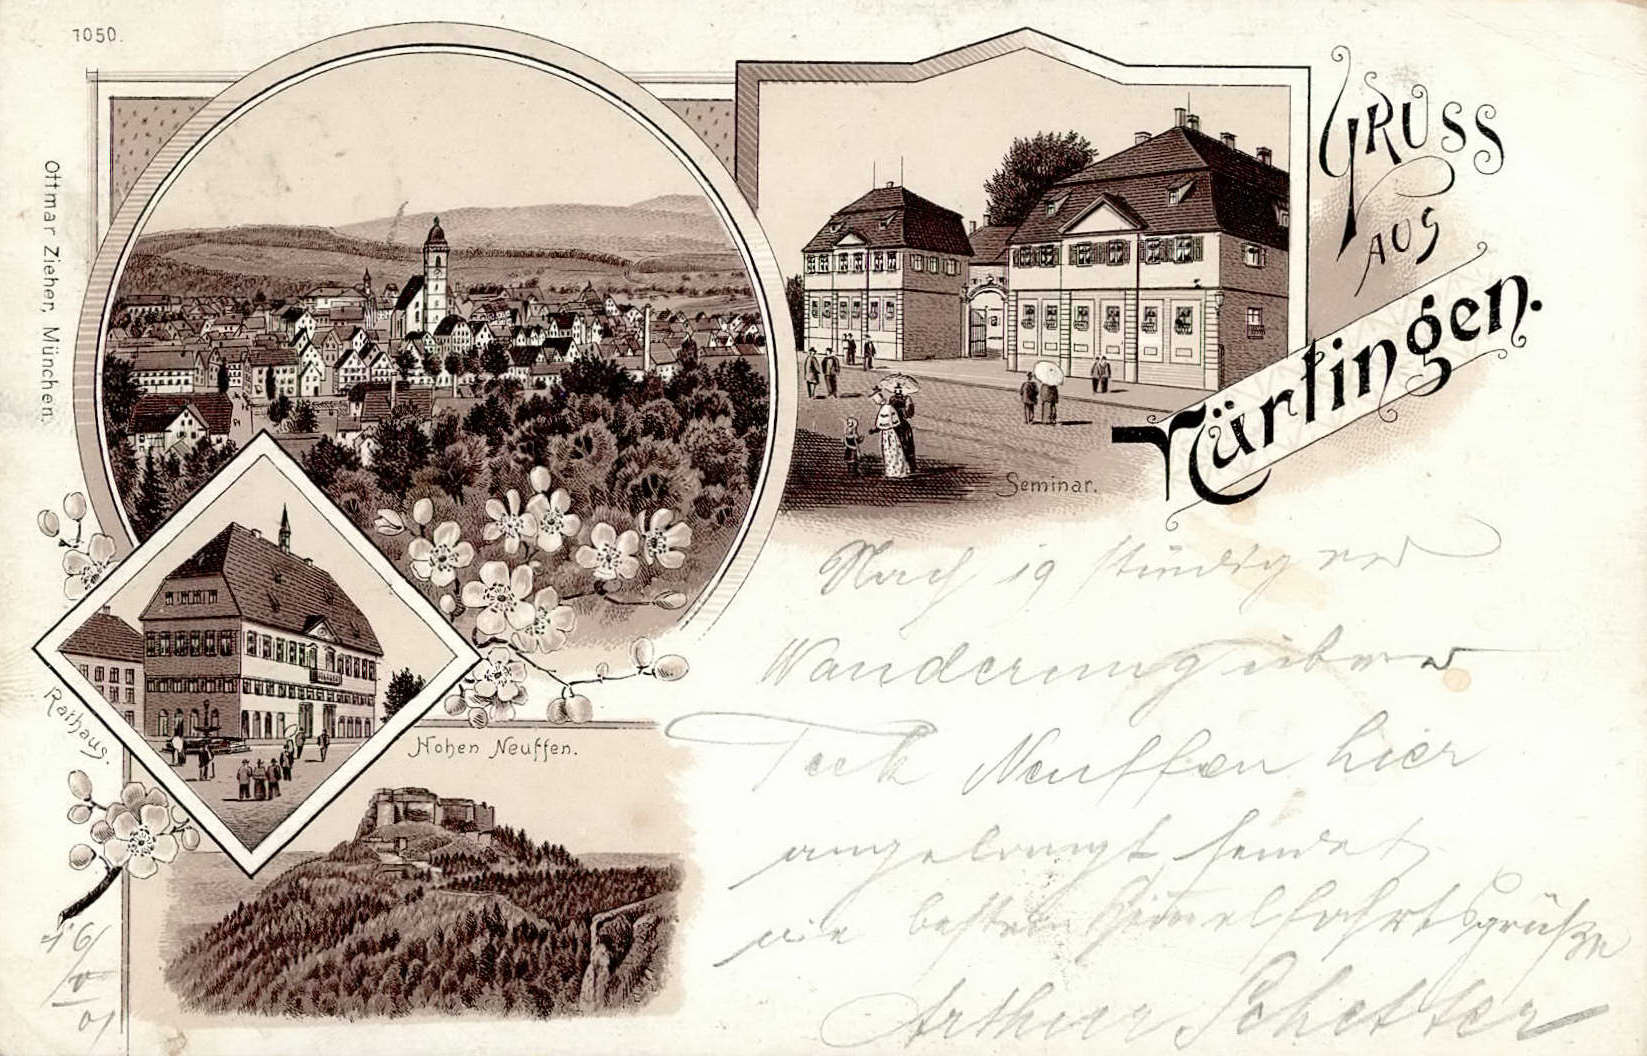 1050.
Ottmar Zieher, München.
GRUSS
AUS
Nürtingen.
Seminar.
Rathaus.
Hohen Neuffen.
Nach 19 stündiger
Wanderung über
Teck Neuffen hier
angelangt sendet
die besten Himmelfahrtsgrüße
Arthur Schetter
16/
V
01